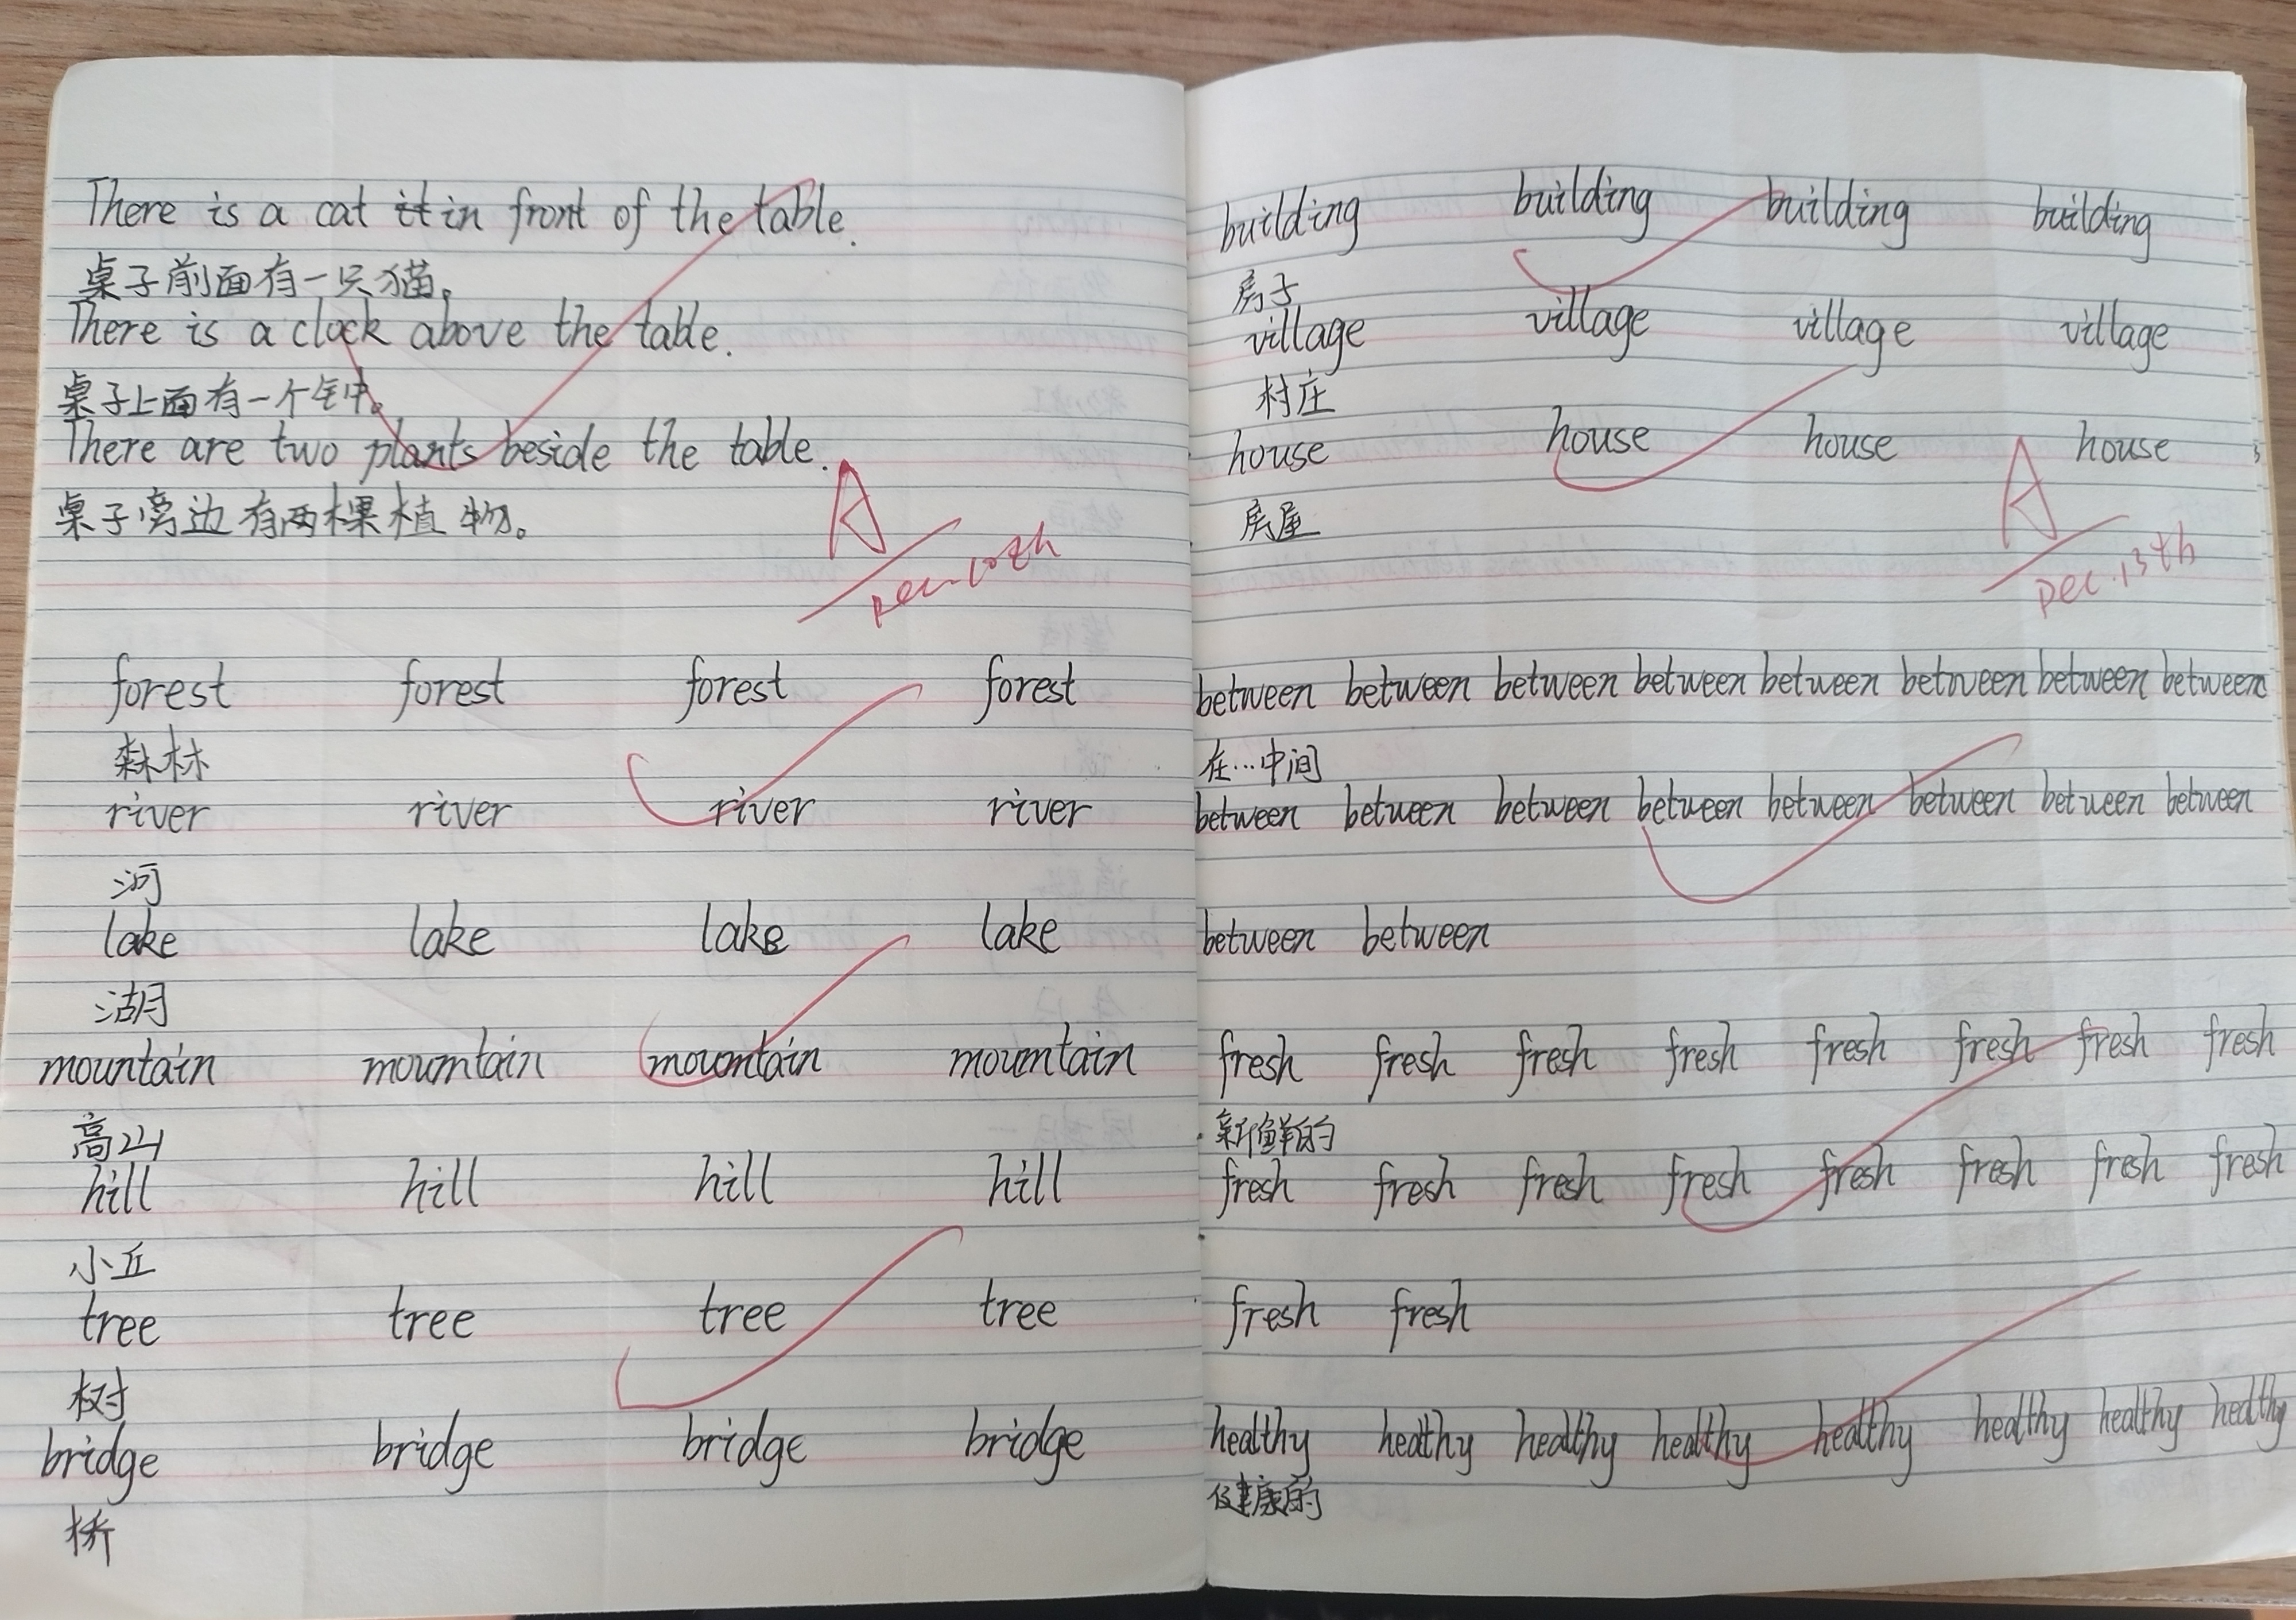 There is a cat it in front of the table.
桌子前面有一只猫。
There is a clock above the table.
桌子上面有一个钟。
There are two plants beside the table.
桌子旁边有两棵植物。
A
Dec.10th
forest forest forest forest
森林
river river river river
河
lake lake lake lake
湖
mountain mountain mountain mountain
高山
hill hill hill hill
小丘
tree tree tree tree
树
bridge bridge bridge bridge
桥
building building building building
房子
village village village village
村庄
house house house house
房屋
A
Dec.13th
between between between between between between between between
在…中间
between between between between between between between between
between between
fresh fresh fresh fresh fresh fresh fresh fresh
新鲜的
fresh fresh fresh fresh fresh fresh fresh fresh
fresh fresh
healthy healthy healthy healthy healthy healthy healthy healthy
健康的